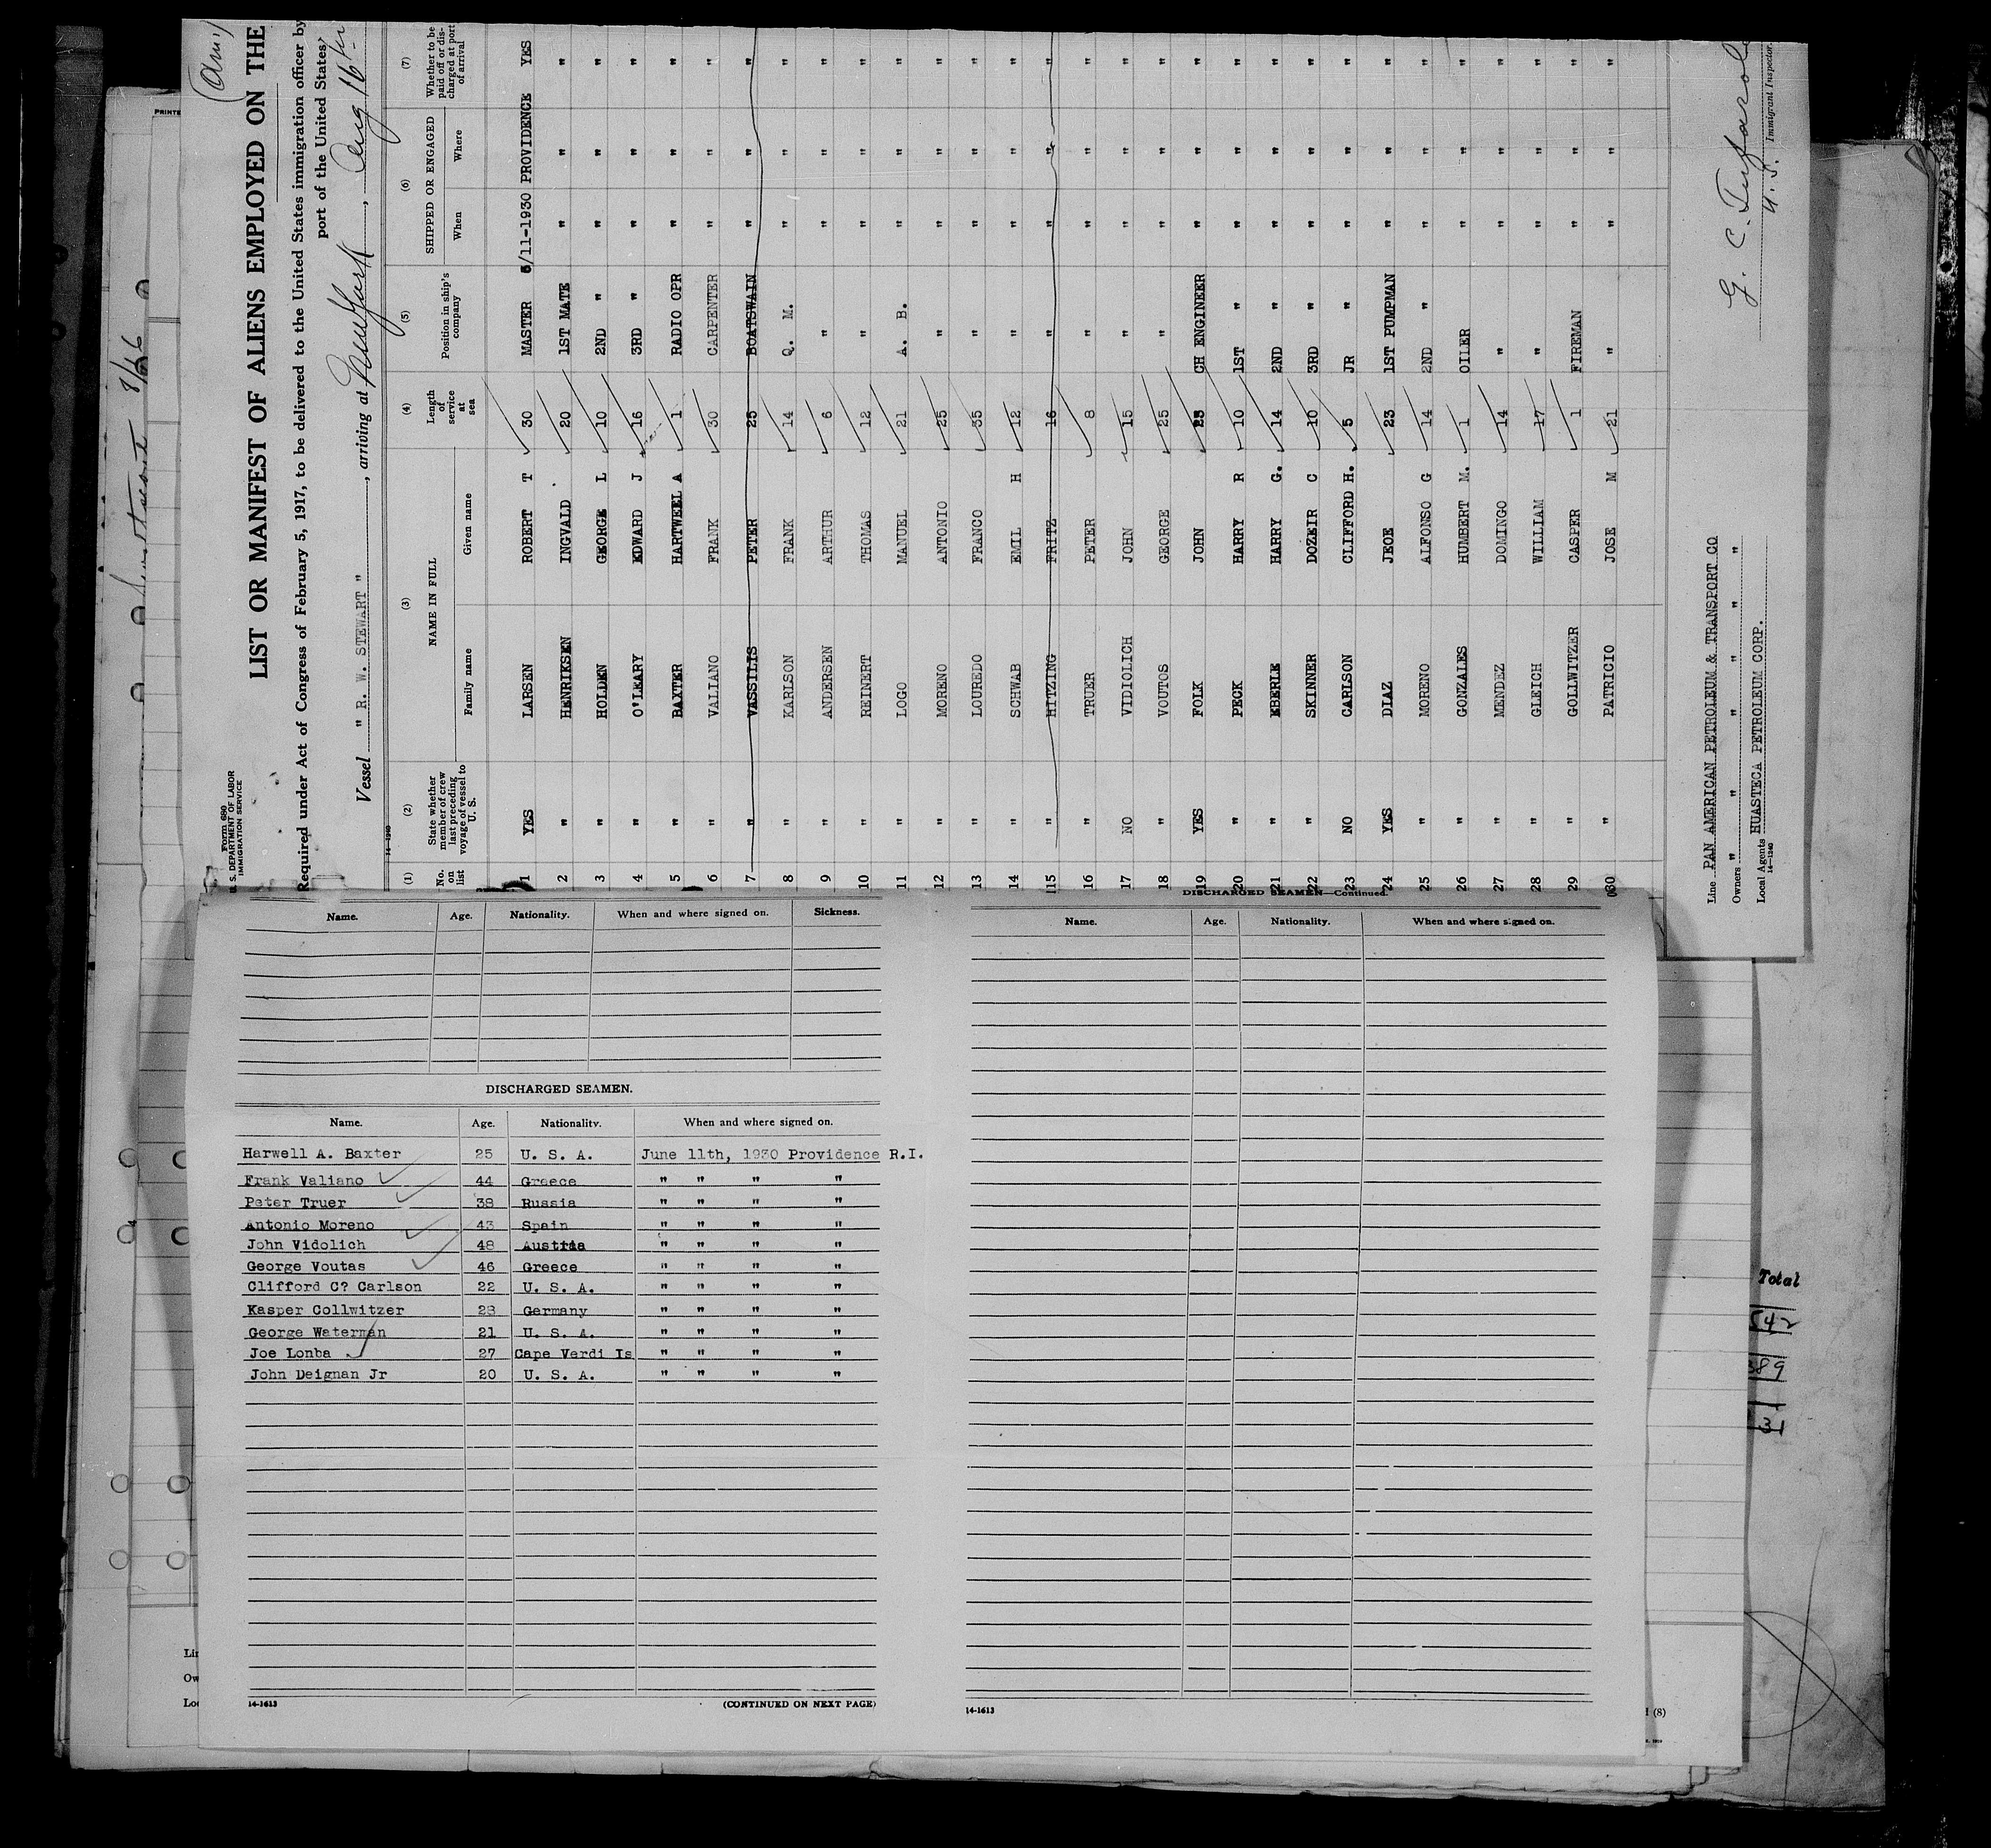 Form 680
U. S. DEPARTMENT OF LABOR
IMMIGRATION SERVICE
LIST OR MANIFEST OF ALIENS EMPLOYED ON THE
Required under Act of Congress of February 5, 1917, to be delivered to the United States immigration officer by
port of the United States
Vessel " R. W. STEWART ", arriving at New York, Aug 16th
14-1240
(1) (2) (3) (4) (5) (6) (7)
No. on list
State whether member of crew last preceding voyage of vessel to U. S.
NAME IN FULL
Family name Given name
Length of service at sea
Position in ship's company
SHIPPED OR ENGAGED
When Where
Whether to be paid off or discharged at port of arrival
1 YES LARSEN ROBERT T 30 MASTER 6/11-1930 PROVIDENCE YES
2 " HENRIKSEN INGVALD 20 1ST MATE " " "
3 " HOLDEN GEORGE L 10 2ND " " " "
4 " O'LEARY EDWARD J 16 3RD " " " "
5 " BAXTER HARTWEEL A 1 RADIO OPR " " "
6 " VALIANO FRANK 30 CARPENTER " " "
7 " VASSILIS PETER 25 BOATSWAIN " " "
8 " KARLSON FRANK 14 Q. M. " " "
9 " ANDERSEN ARTHUR 6 " " " "
10 " REINERT THOMAS 12 " " " "
11 " LOGO MANUEL 21 A. B. " " "
12 " MORENO ANTONIO 25 " " " "
13 " LOUREDO FRANCO 35 " " " "
14 " SCHWAB EMIL H 12 " " " "
15 " HITZING FRITZ 16 " " " "
16 " TRUER PETER 8 " " " "
17 NO VIDIOLICH JOHN 15 " " " "
18 " VOUTOS GEORGE 25 " " " "
19 YES FOLK JOHN 25 CH ENGINEER " " "
20 " PECK HARRY R 10 1ST " " " "
21 " EBERLE HARRY G. 14 2ND " " " "
22 " SKINNER DOZEIR C 10 3RD " " " "
23 NO CARLSON CLIFFORD H. 5 JR " " " "
24 YES DIAZ JEOE 23 1ST PUMPMAN " " "
25 " MORENO ALFONSO G 14 2ND " " " "
26 " GONZALES HUMBERT M. 1 OILER " " "
27 " MENDEZ DOMINGO 14 " " " "
28 " GLEICH WILLIAM 17 " " " "
29 " GOLLWITZER CASPER 1 FIREMAN " " "
30 " PATRICIO JOSE M 21 " " " "
Line PAN AMERICAN PETROLEUM & TRANSPORT CO
Owners " " " " " "
Local Agents HUASTECA PETROLEUM CORP.
14-1240
G. C.
U. S. Immigrant Inspector.
PRINTE
Name. Age. Nationality. When and where signed on. Sickness.
DISCHARGED SEAMEN.
Name. Age. Nationality. When and where signed on.
Harwell A. Baxter 25 U. S. A. June 11th, 1930 Providence R.I.
Frank Valiano 44 Greece " " " "
Peter Truer 38 Russia " " " "
Antonio Moreno 43 Spain " " " "
John Vidolich 48 Austria " " " "
George Voutas 46 Greece " " " "
Clifford C? Carlson 22 U. S. A. " " " "
Kasper Collwitzer 23 Germany " " " "
George Waterman 21 U. S. A. " " " "
Joe Lonba 27 Cape Verdi Is " " " "
John Deignan Jr 20 U. S. A. " " " "
14-1613
(CONTINUED ON NEXT PAGE)
DISCHARGED SEAMEN—Continued.
Name. Age. Nationality. When and where signed on.
14-1613
Total
542
389
1
31
Lin
Ow
Loc
(8)